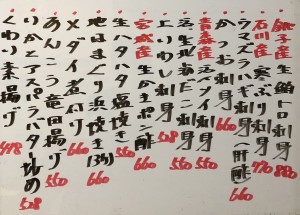 銚子産 生鮪トロ刺身 880
石川産 寒ぶり刺身 770
ウマズラハギ刺身(肝醤) 660
かつお刺身 660
青森産 活ソイ刺身 550
活〆 刺身 550
上いわし刺身 528
宮城産 生かきポン酢 660
生ハタハタ塩焼き 550
地はまぐり浜焼き(3ヶ) 660
メダイ煮付け 660
あんこう竜田揚げ 550
いかとアスパラバター炒め 528
くわい素揚げ 498